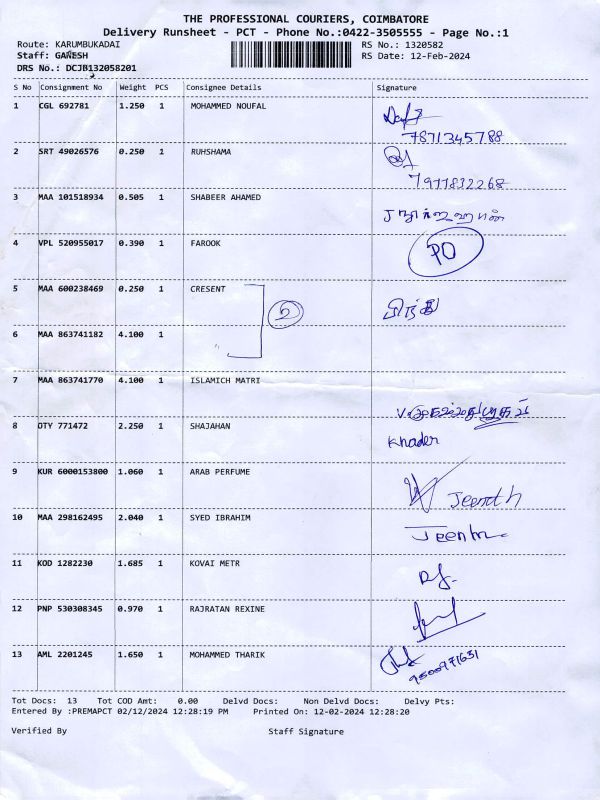 THE PROFESSIONAL COURIERS, COIMBATORE
Delivery Runsheet - PCT - Phone No.:0422-3505555 - Page No.:1
Route: KARUMBUKADAI RS No.: 1320582
Staff: GANESH RS Date: 12-Feb-2024
DRS No.: DCJB132058201
S No Consignment No Weight PCS Consignee Details Signature
1 CGL 692781 1.250 1 MOHAMMED NOUFAL
7871345788
2 SRT 49026576 0.250 1 RUHSHAMA
7977832268
3 MAA 101518934 0.505 1 SHABEER AHAMED
4 VPL 520955017 0.390 1 FAROOK PO
5 MAA 600238469 0.250 1 CRESENT 2
6 MAA 863741182 4.100 1
7 MAA 863741770 4.100 1 ISLAMICH MATRI
8 OTY 771472 2.250 1 SHAJAHAN Khader
9 KUR 6000153800 1.060 1 ARAB PERFUME
10 MAA 298162495 2.040 1 SYED IBRAHIM
11 KOD 1282230 1.685 1 KOVAI METR
12 PNP 530308345 0.970 1 RAJRATAN REXINE
13 AML 2201245 1.650 1 MOHAMMED THARIK
9600971631
Tot Docs: 13 Tot COD Amt: 0.00 Delvd Docs: Non Delvd Docs: Delvy Pts:
Entered By :PREMAPCT 02/12/2024 12:28:19 PM Printed On: 12-02-2024 12:28:20
Verified By Staff Signature